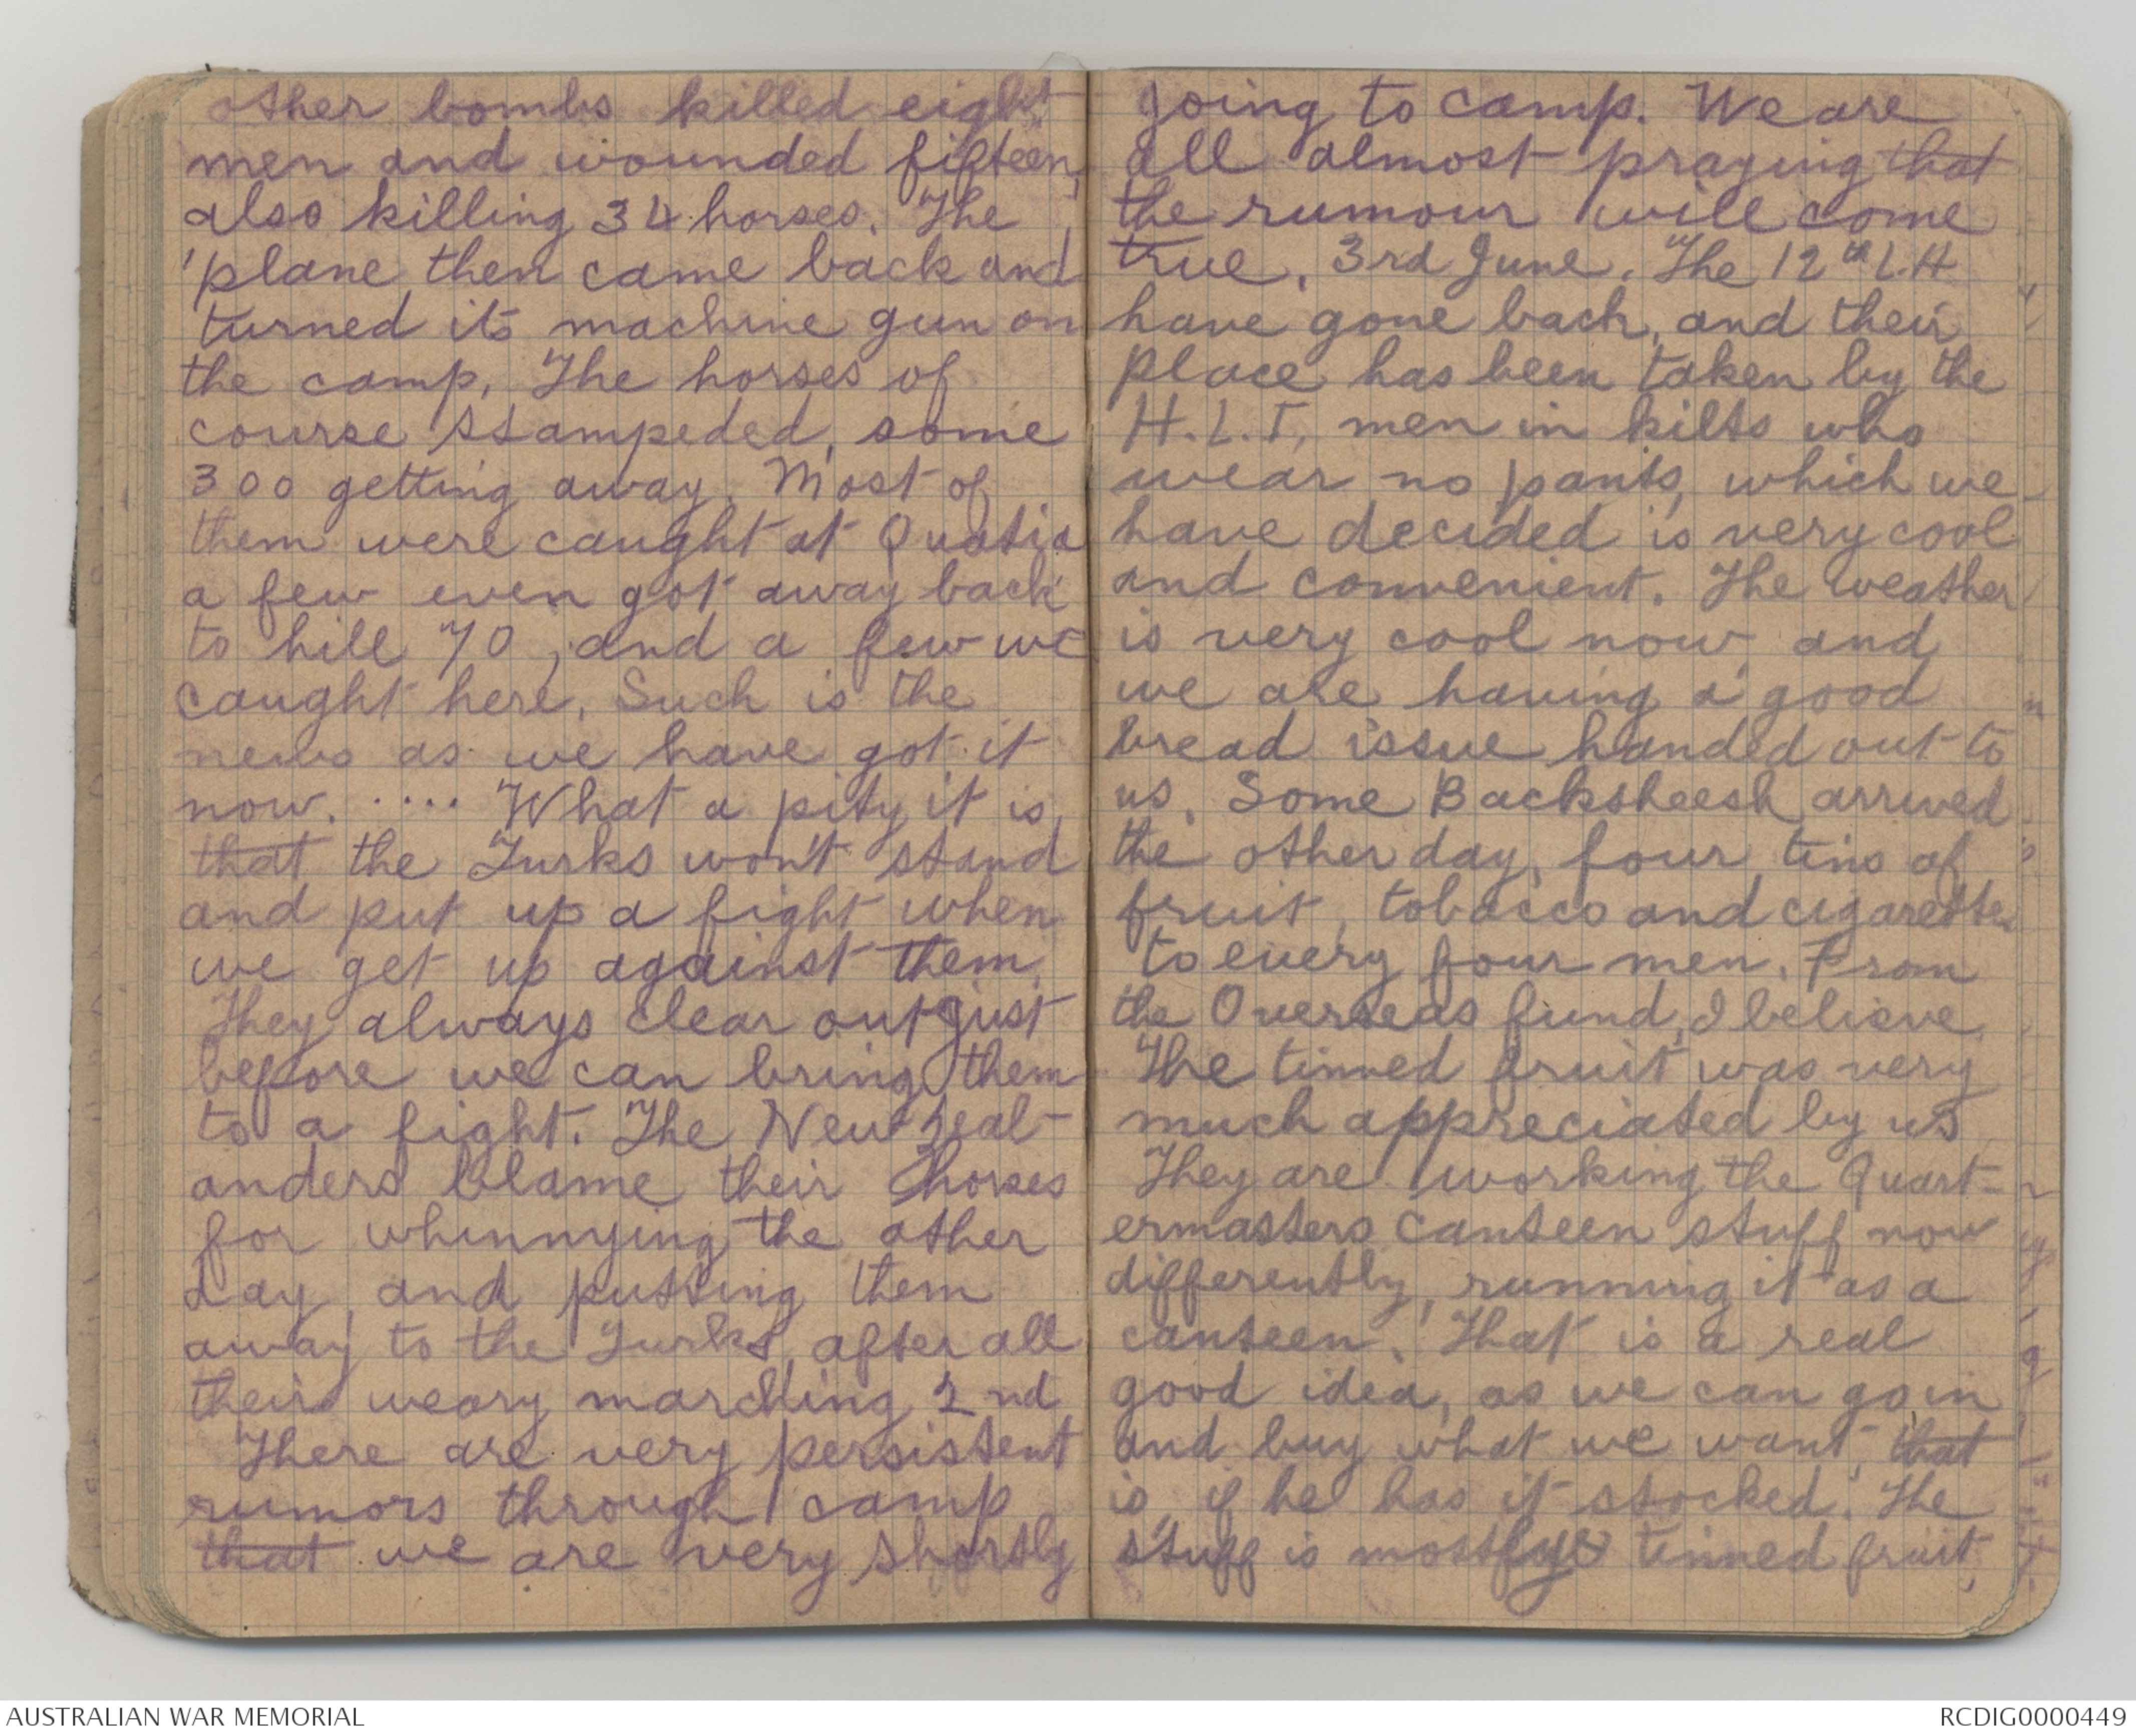 other bombs killed eight
men and wounded fifteen,
also killing 34 horses. The
'plane then came back and
turned its machine gun on
the camp. The horses of
course stampeded, some
300 getting away. Most of
them were caught at Quatia
a few even got away back
to hill 70, and a few we
caught here. Such is the
news as we have got it
now. .... What a pity it is
that the Turks won't stand
and put up a fight when
we get up against them.
They always clear out just
before we can bring them
to a fight. The New Zeal-
anders blame their horses
for whinnying the other
day, and putting them
away to the Turks, after all
their weary marching 2nd
There are very persistent
rumors through camp
that we are very shortly
going to camp. We are
all almost praying that
the rumour will come
true. 3rd June. The 12th L.H
have gone back, and their
place has been taken by the
H.L.I, men in kilts who
wear no pants, which we
have decided is very cool
and convenient. The weather
is very cool now, and
we are having a good
bread issue handed out to
us. Some Backsheesh arrived
the other day, four tins of
fruit, tobacco and cigarettes
to every four men. From
the Overseas fund, I believe.
The tinned fruit was very
much appreciated by us
They are working the Quart-
ermasters canteen stuff now
differently, running it as a
canteen. That is a real
good idea, as we can go in
and buy what we want, that
is, if he has it stocked. The
stuff is mostly tinned fruit,
AUSTRALIAN WAR MEMORIAL
RCDIG0000449